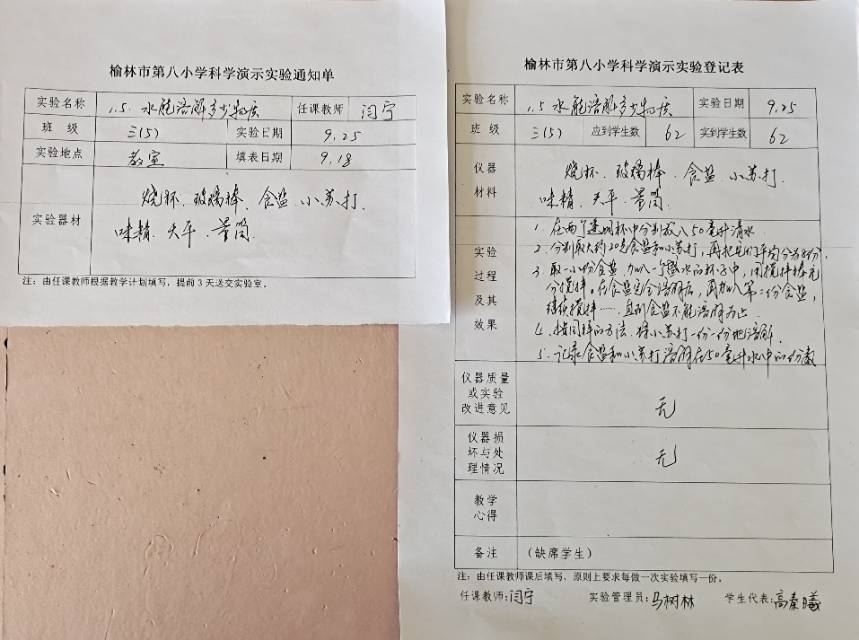 榆林市第八小学科学演示实验通知单
实验名称 1.5. 水能溶解多少物质 任课教师 闫宁
班 级 三(5) 实验日期 9.25
实验地点 教室 填表日期 9.18
实验器材
烧杯、玻璃棒、食盐、小苏打、
味精、天平、量筒、
注：由任课教师根据教学计划填写，提前3天送交实验室。
榆林市第八小学科学演示实验登记表
实验名称 1.5 水能溶解多少物质 实验日期 9.25
班 级 三(5) 应到学生数 62 实到学生数 62
仪器材料
烧杯、玻璃棒、食盐、小苏打、
味精、天平、量筒、
实验过程及其效果
1. 在两个透明杯中分别放入50毫升清水
2. 分别取大约20克食盐和小苏打，再把它们平均分为8份，
3. 取一小份食盐，加入一个盛水的杯子中，用搅拌棒充
分搅拌。在食盐完全溶解后，再加入第二份食盐，
继续搅拌……直到食盐不能溶解为止
4. 按同样的方法，将小苏打一份一份地溶解
5. 记录食盐和小苏打溶解在50毫升水中的份数
仪器质量或实验改进意见 无
仪器损坏与处理情况 无
教学心得
备注 （缺席学生）
注：由任课教师课后填写，原则上要求每做一次实验填写一份。
任课教师：闫宁 实验管理员：马树林 学生代表：高秦曦